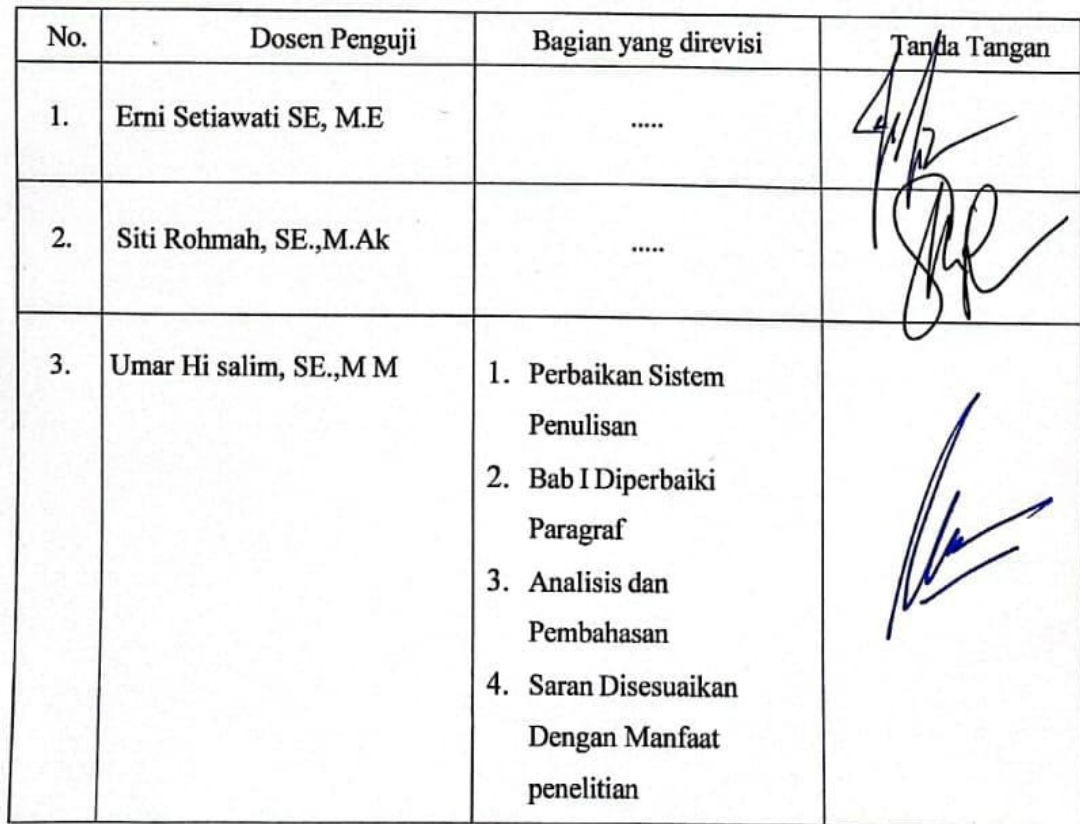 No. Dosen Penguji Bagian yang direvisi Tanda Tangan
1. Erni Setiawati SE, M.E .....
2. Siti Rohmah, SE.,M.Ak .....
3. Umar Hi salim, SE.,M M 1. Perbaikan Sistem
Penulisan
2. Bab I Diperbaiki
Paragraf
3. Analisis dan
Pembahasan
4. Saran Disesuaikan
Dengan Manfaat
penelitian